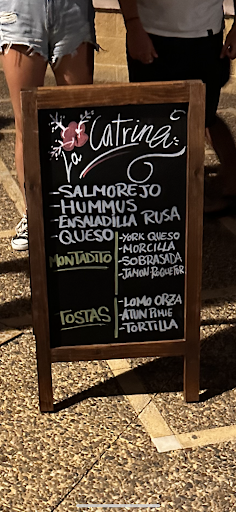 La Catrina
- SALMOREJO
- HUMMUS
- ENSALADILLA RUSA
- QUESO
MONTADITO
- YORK QUESO
- MORCILLA
- SOBRASADA
- JAMON-ROQUEFOR
TOSTAS
- LOMO ORZA
- ATUN PIMIE
- TORTILLA